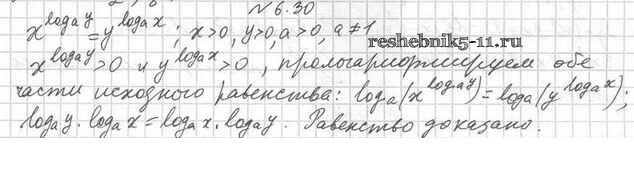 №6.30
x^{log_a y} = y^{log_a x} ; x>0, y>0, a>0, a≠1
reshebnik5-11.ru
x^{log_a y} > 0 и y^{log_a x} > 0 , прологарифмируем обе
части исходного равенства: log_a(x^{log_a y}) = log_a(y^{log_a x});
log_a y · log_a x = log_a x · log_a y. Равенство доказано.